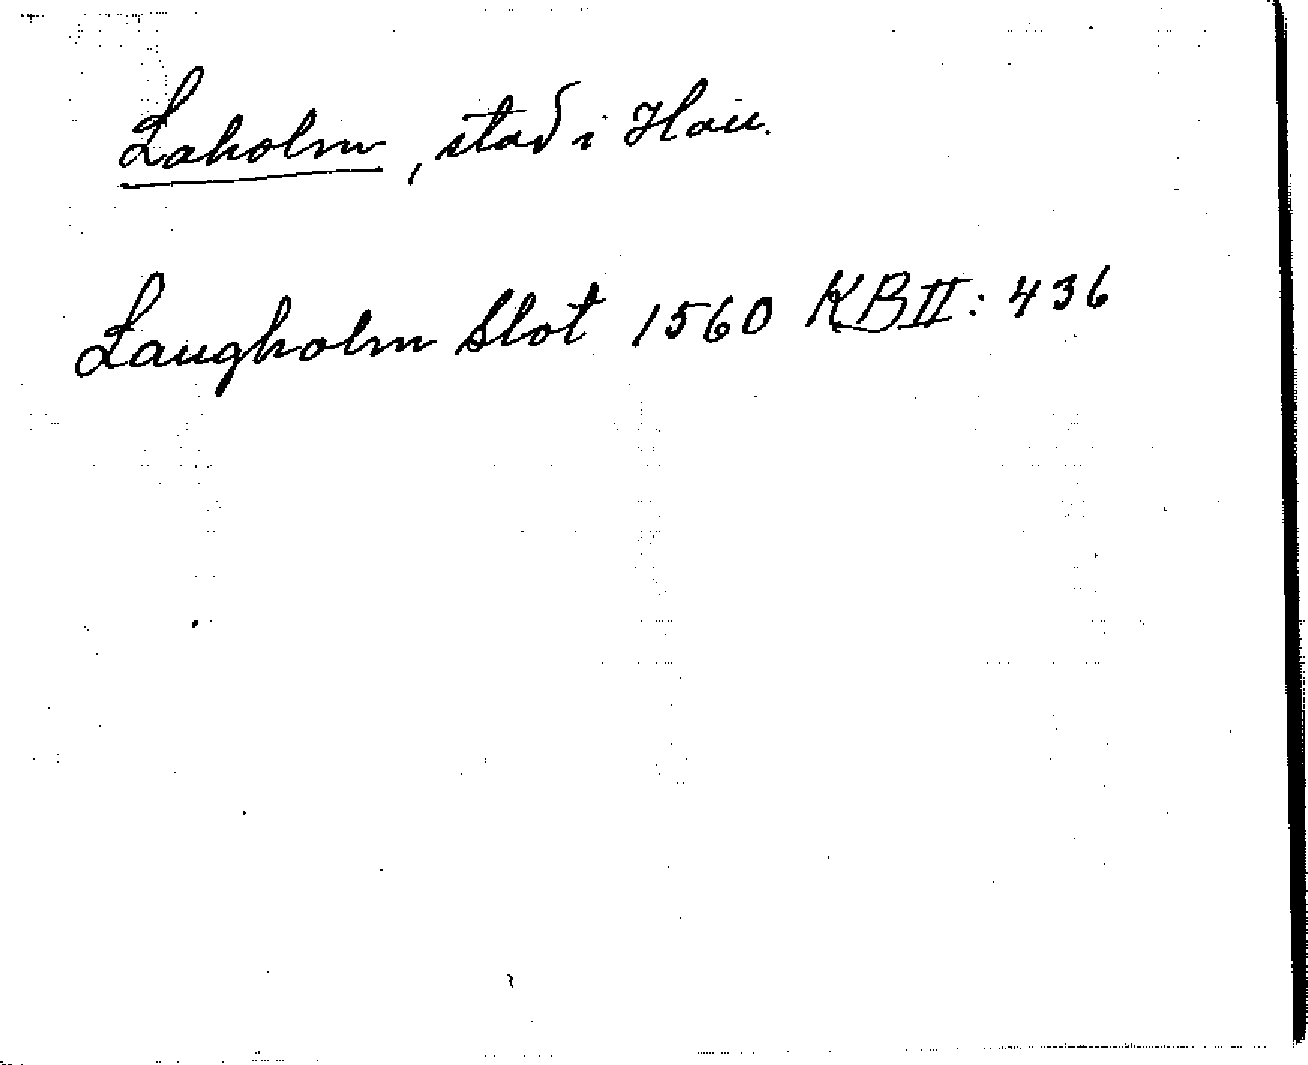 Laholm, stad i Hall.
Laugholm Slot 1560 KB II: 436